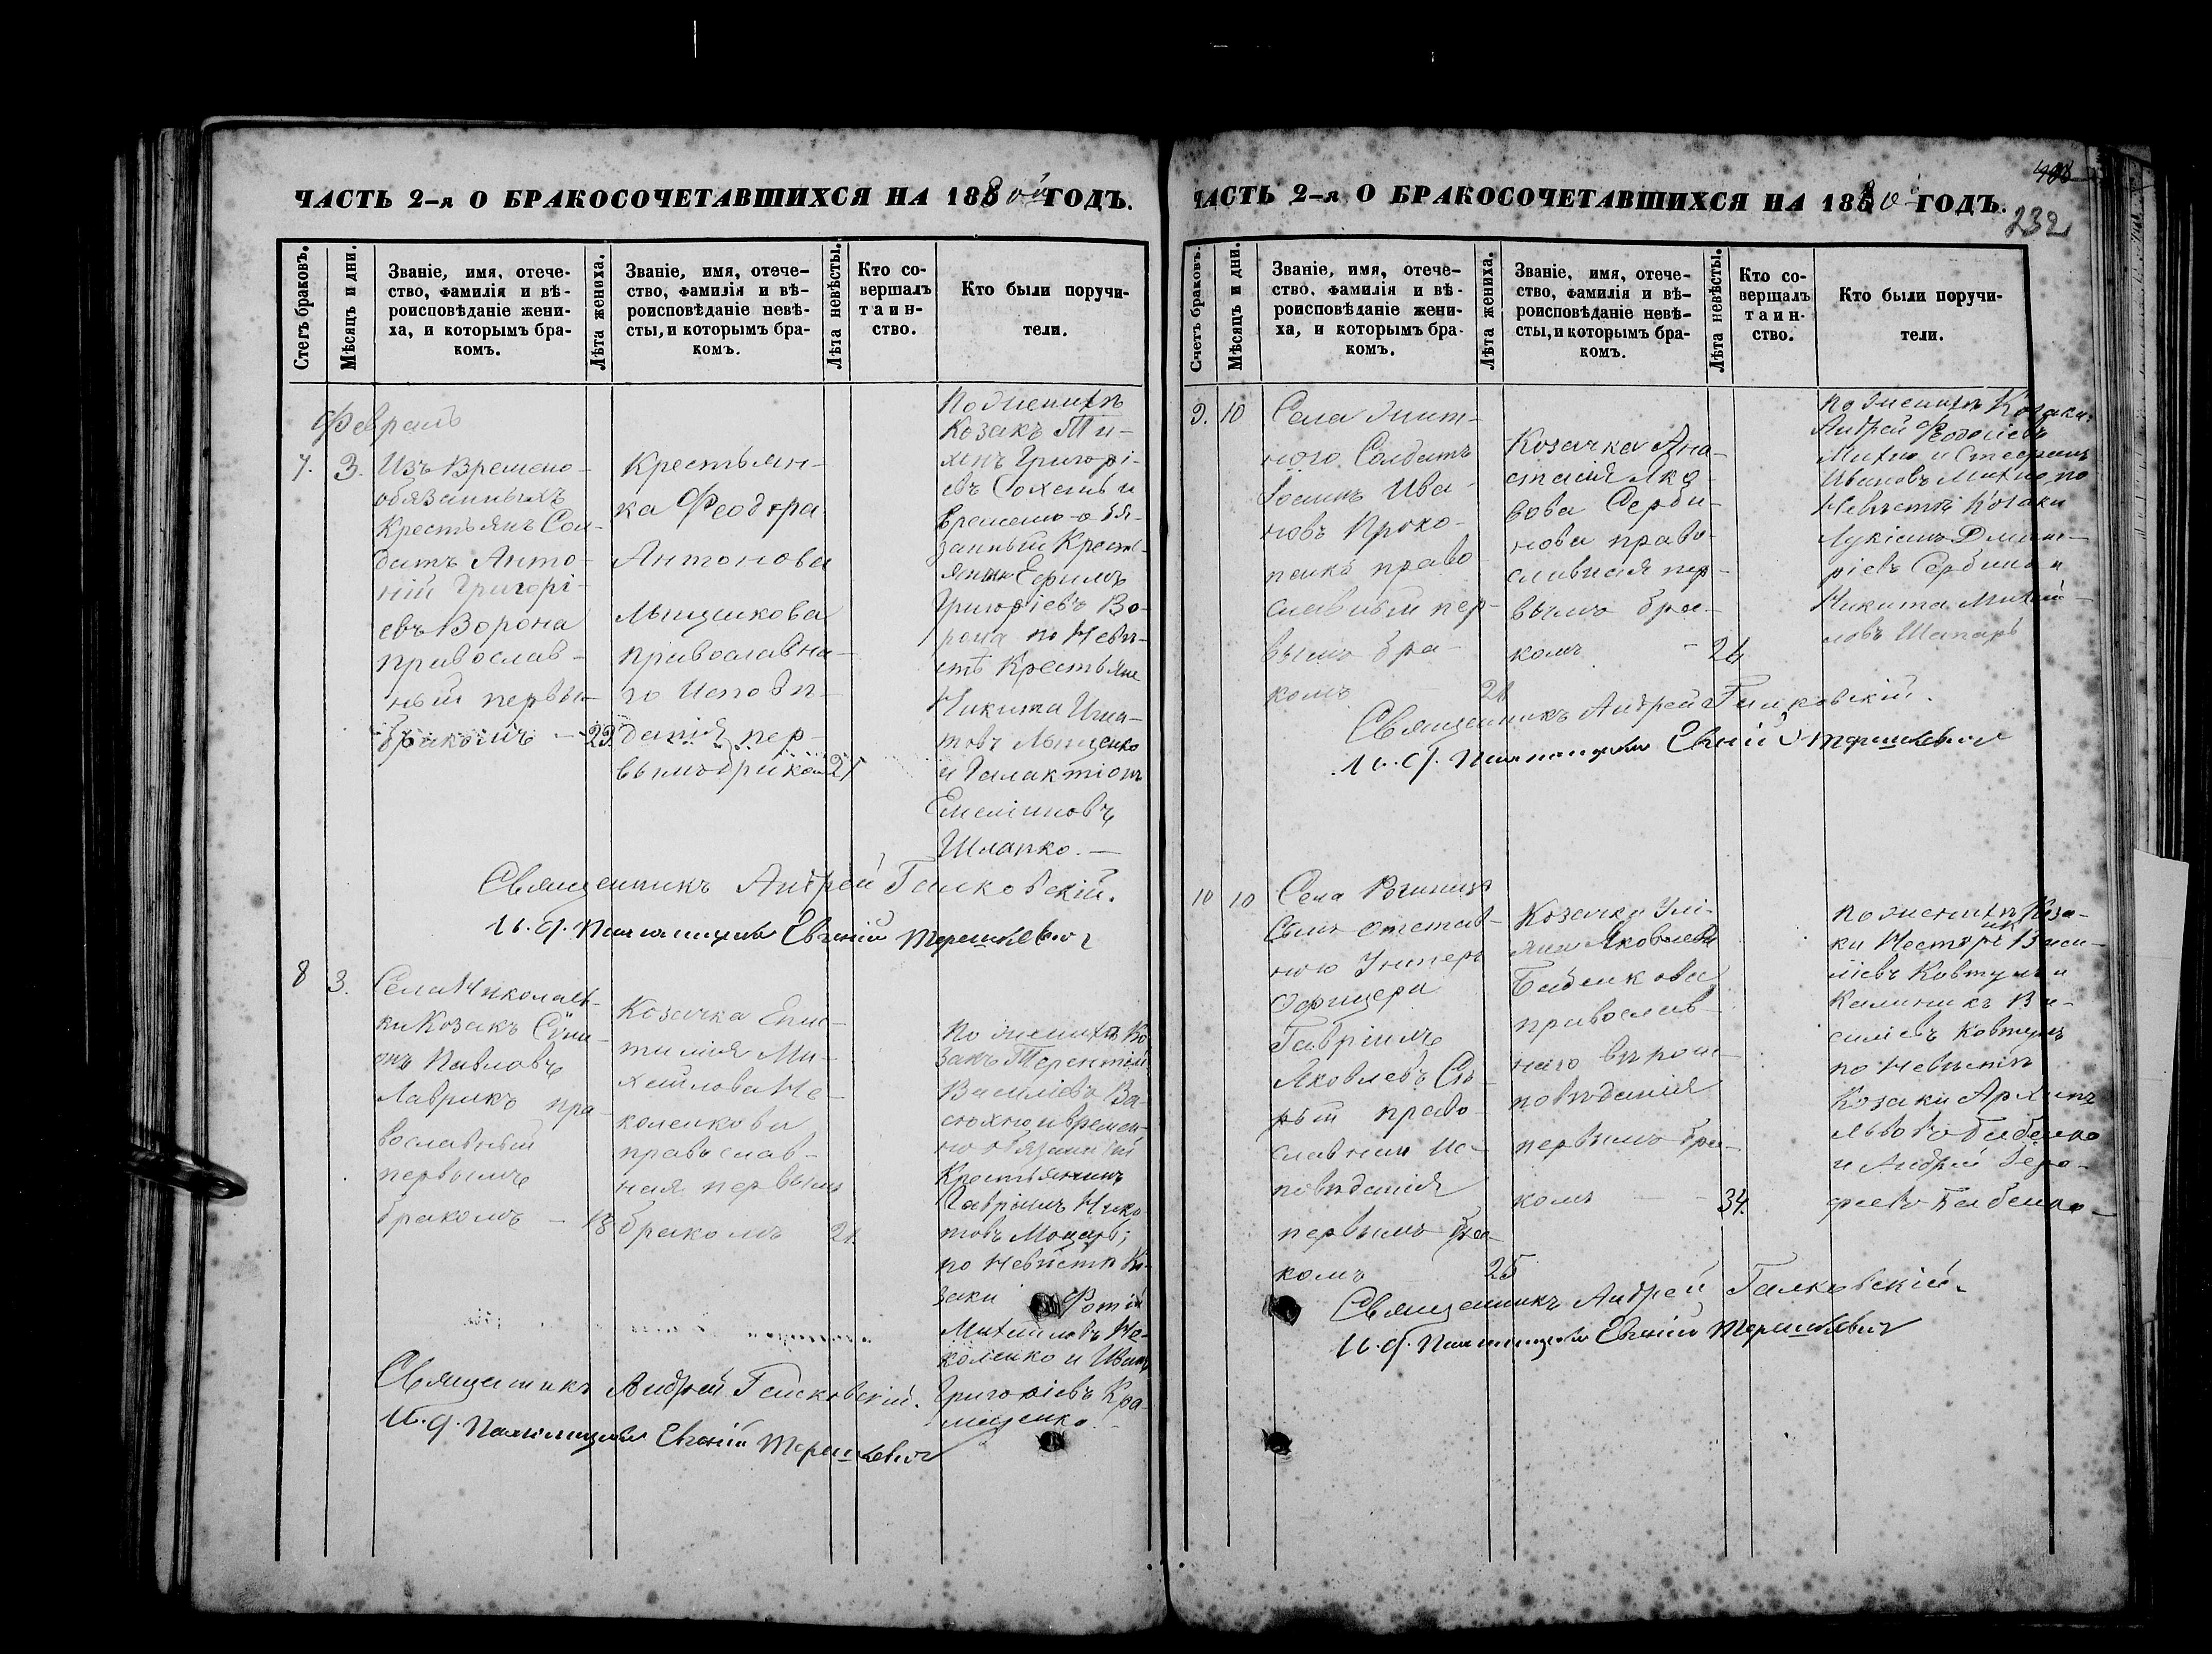 ЧАСТЬ 2-я О БРАКОСОЧЕТАВШИХСЯ НА 1880й ГОДЪ.
Стегъ браковъ.
Мѣсяцъ и дни.
Званіе, имя, отече-
ство, фамилія и вѣ-
роисповѣданіе жени-
ха, и которымъ бра-
комъ.
Лѣта жениха.
Званіе, имя, отече-
ство, фамилія и вѣ-
роисповѣданіе невѣ-
сты, и которымъ бра-
комъ.
Лѣта невѣсты.
Кто со-
вершалъ
таин-
ство.
Кто были поручи-
тели.
Февраль
7. 3.
Изъ Времено-
обязанныхъ
Крестьянъ Сол-
датъ Анто-
ній Григорі-
евъ Ворона
православ-
ный первы
бракомъ — 23.
Крестьян-
ка Феодора
Антонова
Лыщикова
православна-
го Исповѣ-
данія пер-
вымъ браком 21
По женихѣ
Козакъ Ти-
хонъ Григорі-
евъ Сохань и
временно-обя-
занный Крест-
янинъ Ефимъ
Григоріевъ Во-
рона по Невѣ-
стѣ Крестьяне
Никита Игна-
товъ Лыщенко
и Галактіонъ
Емеліановъ
Шлапко. —
Священникъ Андрей Галковскій.
И. д. Псаломщика Евгеній Терешкевичъ
8 3.
Села Николаев-
ки Козакъ Сѵме-
онъ Павловъ
Лаврикъ пра-
вославный
первымъ
бракомъ — 18
Козачка Епис-
тимія Ми-
хайлова Не-
коленкова
православ-
ная первымъ
бракомъ 21.
По женихѣ Ко-
закъ Терентій
Василіевъ Ва-
сюхно и времен-
но обязанный
Крестьянинъ
Гавріилъ Ники-
товъ Моцарь;
по Невѣстѣ Ко-
заки Фотій
Михайловъ Не-
коленко и Иванъ
Григоріевъ Кра-
мщенко.
Священникъ Андрей Галковскій.
И. д. Псаломщика Евгеній Терешкевичъ
232
ЧАСТЬ 2-я О БРАКОСОЧЕТАВШИХСЯ НА 1880 ГОДЪ.
Счетъ браковъ.
Мѣсяцъ и дни.
Званіе, имя, отече-
ство, фамилія и вѣ-
роисповѣданіе жени-
ха, и которымъ бра-
комъ.
Лѣта жениха.
Званіе, имя, отече-
ство, фамилія и вѣ-
роисповѣданіе невѣ-
сты, и которымъ бра-
комъ.
Лѣта невѣсты.
Кто со-
вершалъ
таин-
ство.
Кто были поручи-
тели.
9. 10
Села
ного Солдатъ
Іоаннъ Ива-
новъ Проко-
пенко право-
славный пер-
вымъ бра-
комъ 21
Козачка Ана-
стасія Яко-
вова Серби-
нова право-
славная пер-
вымъ бра-
комъ - 24
По женихѣ Козаки
Андрей Феодосіевъ
Михно и Стефанъ
Ивановъ Михно по
Невѣстѣ Козаки
Лукіанъ Димит-
ріевъ Сербинъ и
Никита Михай-
ловъ Шапарь
Священникъ Андрей Галковскій.
И. д. Псаломщика Евгеній Терешкевичъ
10 10
Села
Сынъ отстав-
ного Унтеръ
Офицера
Гавріилъ
Яковлевъ Сѣ-
рый право-
славнаго Ис-
повѣданія
первымъ бра-
комъ 25
Козачка Улі-
яна Яковлева
Бабенкова
православ-
наго вѣроис-
повѣданія
первымъ бра-
комъ — - 34.
По женихѣ Коза-
ки Несторъ Васи-
ліевъ Ковтунъ и
Калиникъ Ва-
силіевъ Ковтунъ
по Невѣстѣ
Козаки Архипъ
Львовъ Бабенко
и Андрей Іеро-
феевъ Бабенко
Священникъ Андрей Галковскій.
И. д. Псаломщика Евгеній Терешкевичъ